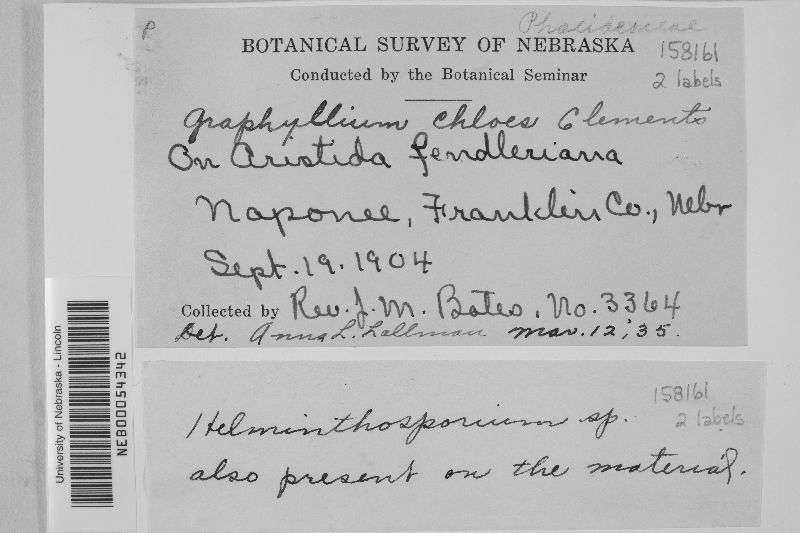 P
BOTANICAL SURVEY OF NEBRASKA
158161
Conducted by the Botanical Seminar
2 labels
Graphyllium chloes Clements
On Aristida fendleriana
Naponee, Franklin Co., Nebr
Sept. 19. 1904
Collected by Rev. J. M. Bates. No. 3364
Det. Anna L. Lallman Mar. 12, '35.
University of Nebraska - Lincoln
NEB00054342
158161
2 labels
Helminthosporium sp.
also present on the material.